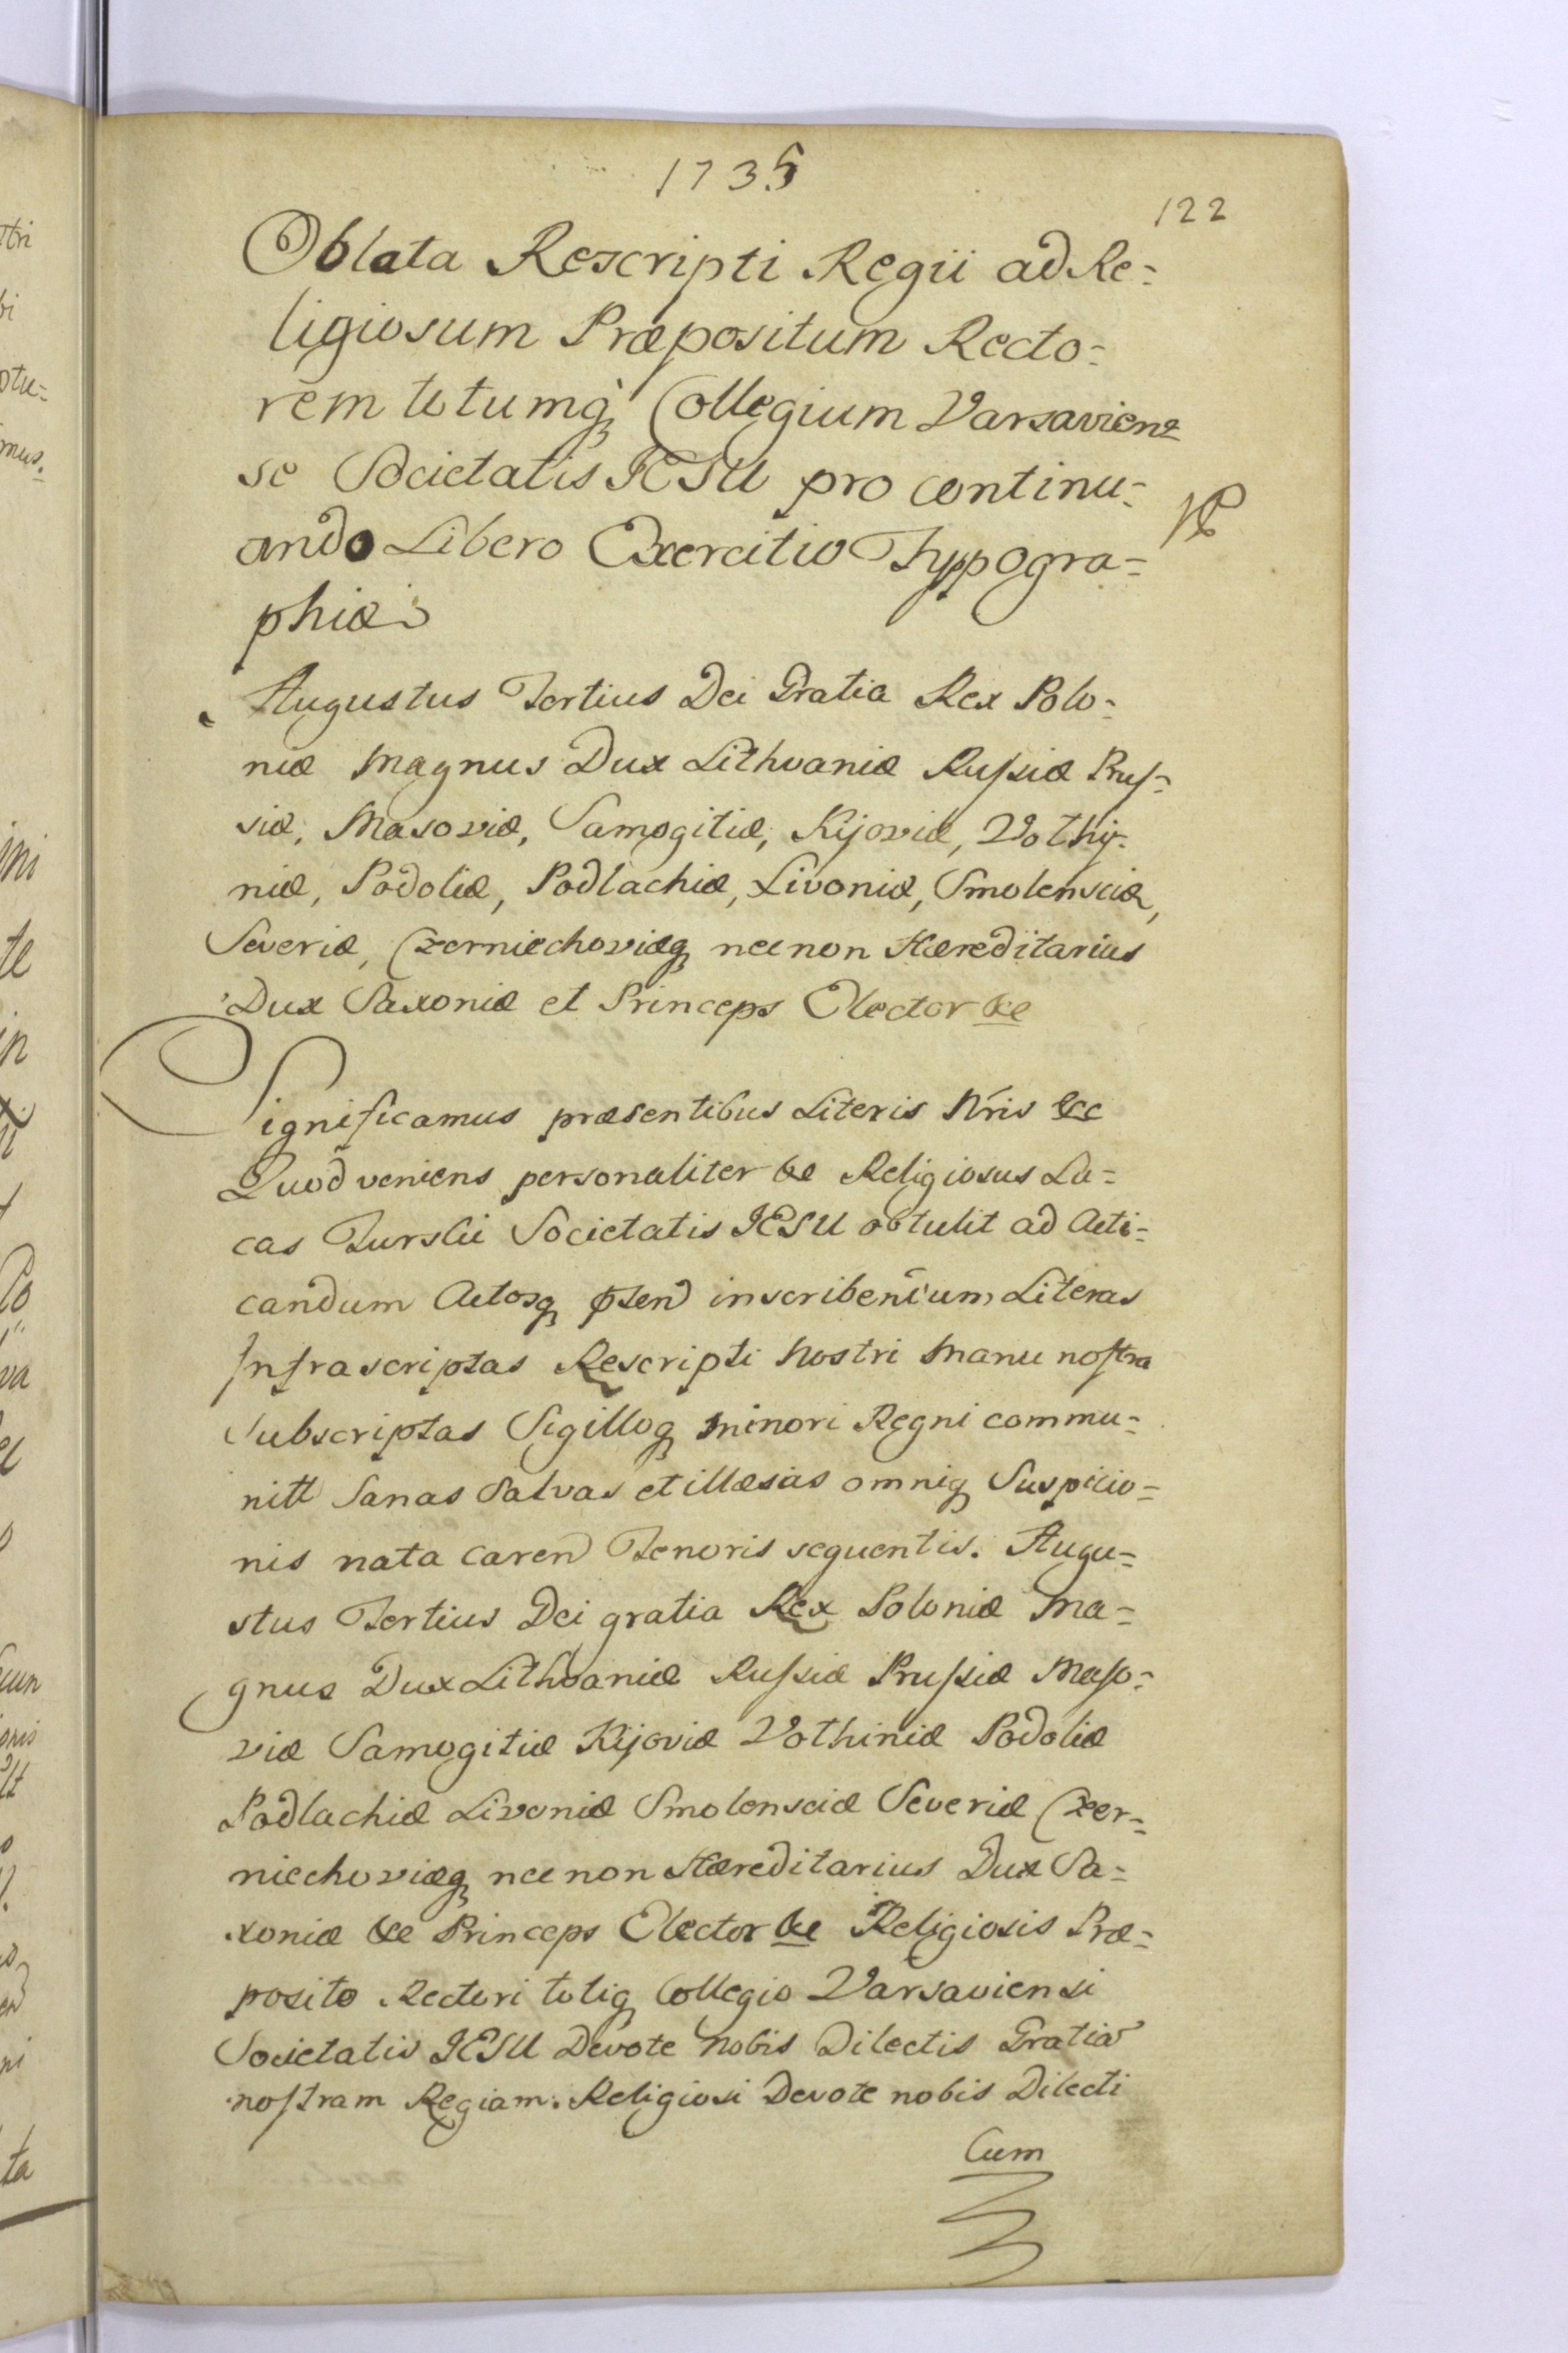 1735
122
Oblata Rescripti Regii ad Re=
ligiosum Præpositum Recto=
rem totumq Collegium Varsavien=
se Societatis JESU pro continu=
ando Libero Exercitio Thypogra=
phiæ
Augustus Tertius Dei Gratia Rex Polo=
niæ Magnus Dux Lithvaniæ Russiæ Prus=
siæ, Masoviæ, Samogitiæ, Kijoviæ, Volhy=
niæ, Podoliæ, Podlachiæ, Livoniæ, Smolensciæ,
Severiæ, Czerniechoviæq necnon Hæreditarius
Dux Saxoniæ et Princeps Elector &c
Significamus præsentibus Literis Nris &c
Quod veniens personaliter &c Religiosus Lu=
cas Turski Societatis JESU obtulit ad Acti=
candum Actosq psten inscribendum Literas
Infrascriptas Rescripti Nostri Manu nostra
Subscriptas Sigilloq minori Regni commu=
nitt Sanas Salvas et illæsas omniq Suspicio=
nis nata caren Tenoris sequentis. Augu=
stus Tertius Dei gratia Rex Poloniæ Ma=
gnus Dux Lithvaniæ Russiæ Prussiæ Maso=
viæ Samogitiæ Kijoviæ Volhiniæ Podoliæ
Podlachiæ Livoniæ Smolensciæ Severiæ Czer=
niechoviæq necnon Hæreditarius Dux Sa=
xoniæ &c Princeps Elector &c Religiosis Præ=
posito Rectori totiq Collegio Varsaviensi
Societatis JESU Devote nobis Dilectis Gratia
nostram Regiam. Religiosi Devote nobis Dilecti
Cum